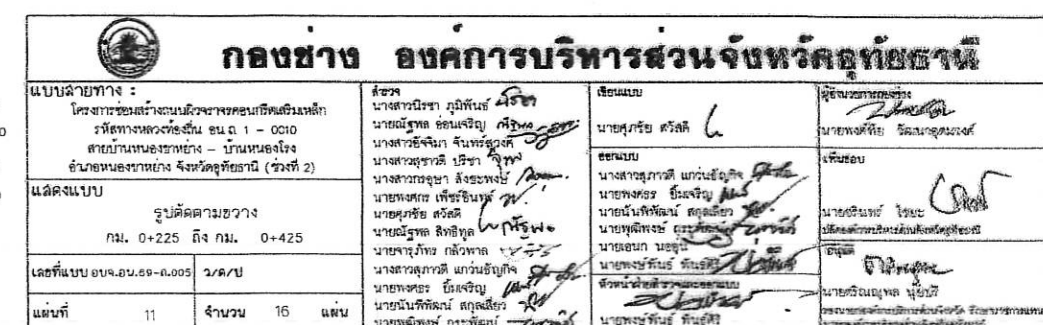 กองช่าง องค์การบริหารส่วนจังหวัดอุทัยธานี
แบบสายทาง :
โครงการซ่อมสร้างถนนผิวจราจรคอนกรีตเสริมเหล็ก
รหัสทางหลวงท้องถิ่น อน.ถ. 1 - 0010
สายบ้านหนองขาหย่าง - บ้านหนองโรง
อำเภอหนองขาหย่าง จังหวัดอุทัยธานี (ช่วงที่ 2)
แสดงแบบ
รูปตัดตามขวาง
กม. 0+225 ถึง กม. 0+425
เลขที่แบบ อบจ.อน.69-ถ.005 ว/ด/ป
แผ่นที่ 11 จำนวน 16 แผ่น
สำรวจ
นางสาวนิรชา ภูมิพันธ์
นายณัฐพล อ่อนเจริญ
นางสาวอัจจิมา
นางสาวสุชาวดี ปรีชา
นางสาวกรอุษา ลังธะพงษ์
นายพงศกร เพ็ชร์อินทร์
นายศุภชัย สวัสดิ์
นายณัฐพล สิทธิทูล
นายจารุภัทร กล้วพาล
นางสาวสุภาวดี แก่วนธัญกิจ
นายพงศธร ยิ้มเจริญ
นายนันพิพัฒน์ สกุลเลี่ยว
นายพุฒิพงษ์
เขียนแบบ
นายศุภชัย สวัสดิ์
ออกแบบ
นางสาวสุภาวดี แก่วนธัญกิจ
นายพงศธร ยิ้มเจริญ
นายนันพิพัฒน์ สกุลเลี่ยว
นายพุฒิพงษ์
นายเอนก
นายพงษ์พันธ์ พันธุ์ศิริ
หัวหน้าฝ่ายสำรวจและออกแบบ
นายพงษ์พันธ์ พันธุ์ศิริ
ผู้อำนวยการกองช่าง
นายพงศ์ทีย วัฒนาอุดมวงศ์
เห็นชอบ
นายชรินทร์ ไชยะ
ปลัดองค์การบริหารส่วนจังหวัดอุทัยธานี
อนุมัติ